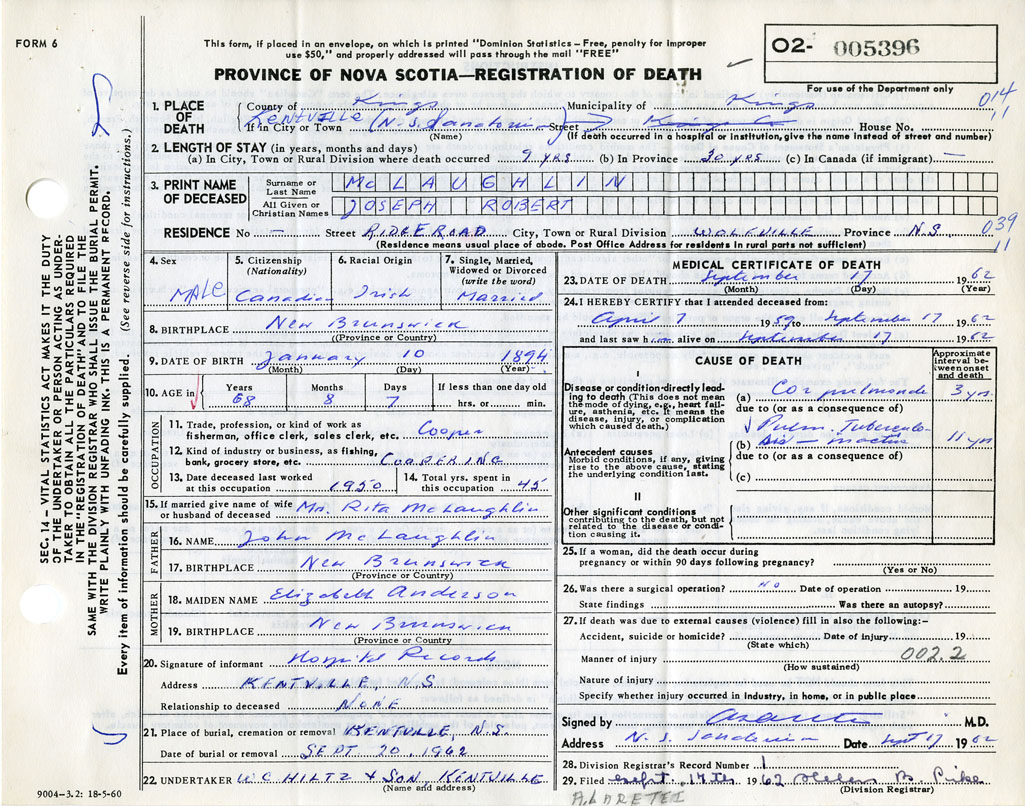 FORM 6
This form, if placed in an envelope, on which is printed "Dominion Statistics – Free, penalty for improper
use $50," and properly addressed will pass through the mail "FREE"
02- 005396
PROVINCE OF NOVA SCOTIA—REGISTRATION OF DEATH
For use of the Department only
1. PLACE OF DEATH County of Kings Municipality of Kings 014 11
KENTVILLE (N.S. Sanatorium)
If in City or Town Street Kings Co House No.
(Name) (If death occurred in a hospital or institution, give the name instead of street and number)
2. LENGTH OF STAY (in years, months and days)
(a) In City, Town or Rural Division where death occurred 9 YRS (b) In Province 30 YRS (c) In Canada (if immigrant) —
3. PRINT NAME OF DECEASED
Surname or Last Name McLAUGHLIN
All Given or Christian Names JOSEPH ROBERT
RESIDENCE No — Street RIDGE ROAD City, Town or Rural Division WOLFVILLE Province N.S. 039 11
(Residence means usual place of abode. Post Office Address for residents in rural parts not sufficient)
4. Sex MALE
5. Citizenship (Nationality) Canadian
6. Racial Origin Irish
7. Single, Married, Widowed or Divorced (write the word) Married
8. BIRTHPLACE New Brunswick
(Province or Country)
9. DATE OF BIRTH January 10 1894
(Month) (Day) (Year)
10. AGE in Years 68 Months 8 Days 7 If less than one day old hrs. or min.
OCCUPATION
11. Trade, profession, or kind of work as fisherman, office clerk, sales clerk, etc. Cooper
12. Kind of industry or business, as fishing, bank, grocery store, etc. COOPERING
13. Date deceased last worked at this occupation 1950
14. Total yrs. spent in this occupation 45
15. If married give name of wife or husband of deceased Mrs. Rita McLaughlin
FATHER
16. NAME John McLaughlin
17. BIRTHPLACE New Brunswick
(Province or Country)
MOTHER
18. MAIDEN NAME Elizabeth Anderson
19. BIRTHPLACE New Brunswick
(Province or Country)
20. Signature of informant Hospital Records
Address KENTVILLE, N.S
Relationship to deceased NONE
21. Place of burial, cremation or removal KENTVILLE, N.S.
Date of burial or removal SEPT 20, 1962
22. UNDERTAKER W C HILTZ + SON, KENTVILLE
(Name and address)
9004–3.2: 18-5-60
MEDICAL CERTIFICATE OF DEATH
23. DATE OF DEATH September 17 1962
(Month) (Day) (Year)
24. I HEREBY CERTIFY that I attended deceased from:
April 7 1959 to September 17 1962
and last saw him alive on September 17 1962
CAUSE OF DEATH
Approximate interval between onset and death
I
Disease or condition directly leading to death (This does not mean the mode of dying, e.g., heart failure, asthenia, etc. It means the disease, injury, or complication which caused death.)
(a) Cor pulmonale 3 yrs
due to (or as a consequence of)
Antecedent causes
Morbid conditions, if any, giving rise to the above cause, stating the underlying condition last.
(b) Pulm. Tuberculosis – inactive 11 yrs
due to (or as a consequence of)
(c)
II
Other significant conditions
contributing to the death, but not related to the disease or condition causing it.
25. If a woman, did the death occur during pregnancy or within 90 days following pregnancy?
(Yes or No)
26. Was there a surgical operation? NO Date of operation 19
State findings Was there an autopsy?
27. If death was due to external causes (violence) fill in also the following:–
Accident, suicide or homicide? Date of injury 19
(State which)
Manner of injury 002.2
(How sustained)
Nature of injury
Specify whether injury occurred in industry, in home, or in public place
Signed by M.D.
Address N.S. Sanatorium Date Sept 17 1962
28. Division Registrar's Record Number 1
29. Filed Sept. 19th 1962 Helen B. Pirke
(Division Registrar)
SEC. 14 – VITAL STATISTICS ACT MAKES IT THE DUTY
OF THE UNDERTAKER OR PERSON ACTING AS UNDER-
TAKER TO OBTAIN ALL THE PARTICULARS REQUIRED
IN THE "REGISTRATION OF DEATH" AND TO FILE THE
SAME WITH THE DIVISION REGISTRAR WHO SHALL ISSUE THE BURIAL PERMIT.
WRITE PLAINLY WITH UNFADING INK. THIS IS A PERMANENT RECORD.
Every item of information should be carefully supplied. (See reverse side for instructions.)